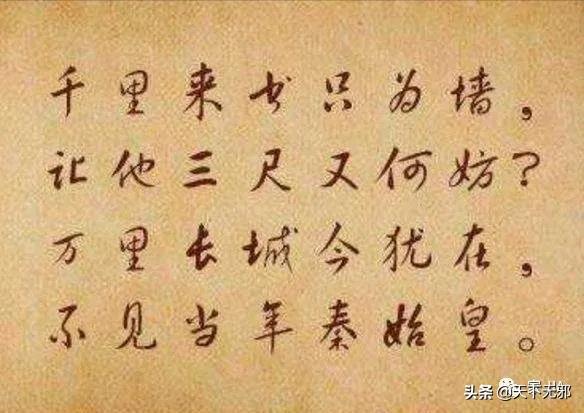 千里来书只为墙，
让他三尺又何妨？
万里长城今犹在，
不见当年秦始皇。
头条 @天下无邪